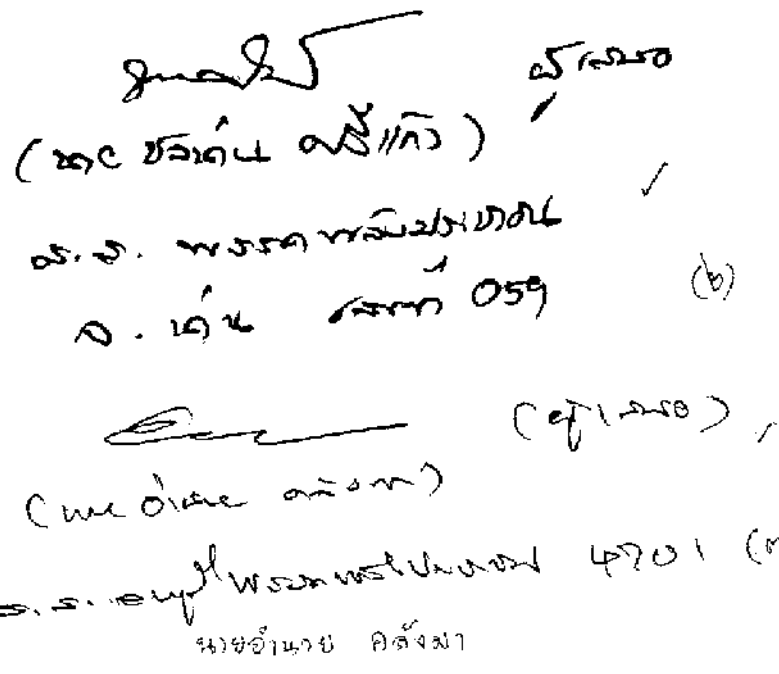 ผู้เสนอ
(นาย ชลน่าน ศรีแก้ว)
ส.ส. พรรคพลังประชาชน
จ. น่าน เลขที่ 059
(๒)
(ผู้เสนอ)
(นาย อำนวย คลังผา)
ส.ส. ลพบุรี พรรคพลังประชาชน
นายอำนวย คลังผา